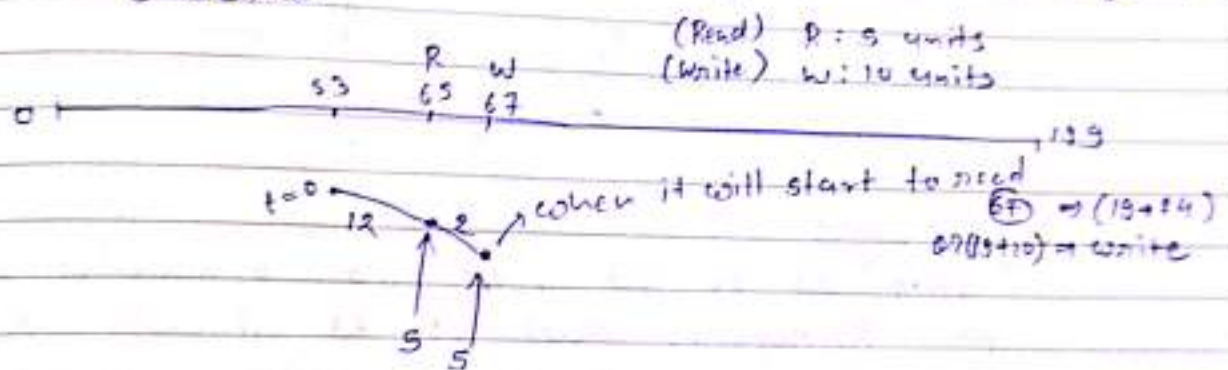 (Read) R : 5 units
(Write) W : 10 units
R W
53 65 67
0 199
t=0 when it will start to need
12 2 67 ⇒ (19+24)
67(19+10) ⇒ write
5 5